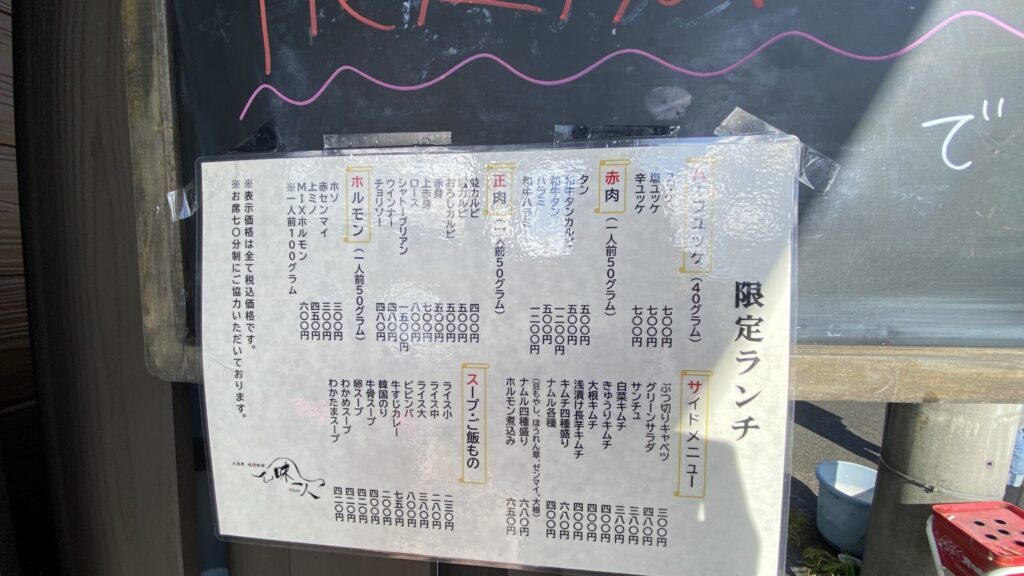 で
限定ランチ
ユッケ(40グラム)
七〇〇円
塩ユッケ 七〇〇円
辛ユッケ 七〇〇円
赤肉(一人前50グラム)
タン 五〇〇円
和牛タンカルビ 五〇〇円
和牛タン 一二〇〇円
ハラミ 五〇〇円
和牛ハラミ 一二〇〇円
正肉(一人前50グラム)
並カルビ 四〇〇円
塩カルビ 五〇〇円
おろしカルビ 五〇〇円
赤身 五〇〇円
上赤身 七〇〇円
ロース 八〇〇円
シャトーブリアン 一五〇〇円
ウインナー 四八〇円
チョリソー 四八〇円
ホルモン(一人前50グラム)
ホソ 三〇〇円
赤センマイ 三〇〇円
上ミノ 四五〇円
MIXホルモン 六〇〇円
※一人前100グラム
サイドメニュー
ぶつ切りキャベツ 三〇〇円
グリーンサラダ 四八〇円
サンチュ 三八〇円
白菜キムチ 三八〇円
きゅうりキムチ 四〇〇円
大根キムチ 四〇〇円
浅漬け長芋キムチ 五〇〇円
キムチ四種盛り 六八〇円
ナムル各種 四〇〇円
ナムル四種盛り 六八〇円
(豆もやし、ほうれん草、ゼンマイ、大根)
ホルモン煮込み 六五〇円
スープ・ご飯もの
ライス小 二三〇円
ライス中 二八〇円
ライス大 三八〇円
ビビンバ 八〇〇円
牛すじカレー 七五〇円
韓国のり 二〇〇円
牛骨スープ 四〇〇円
卵スープ 四二〇円
わかめスープ 四二〇円
わかたまスープ 四二〇円
※表示価格は全て税込価格です。
※お席七〇分制にご協力いただいております。
味